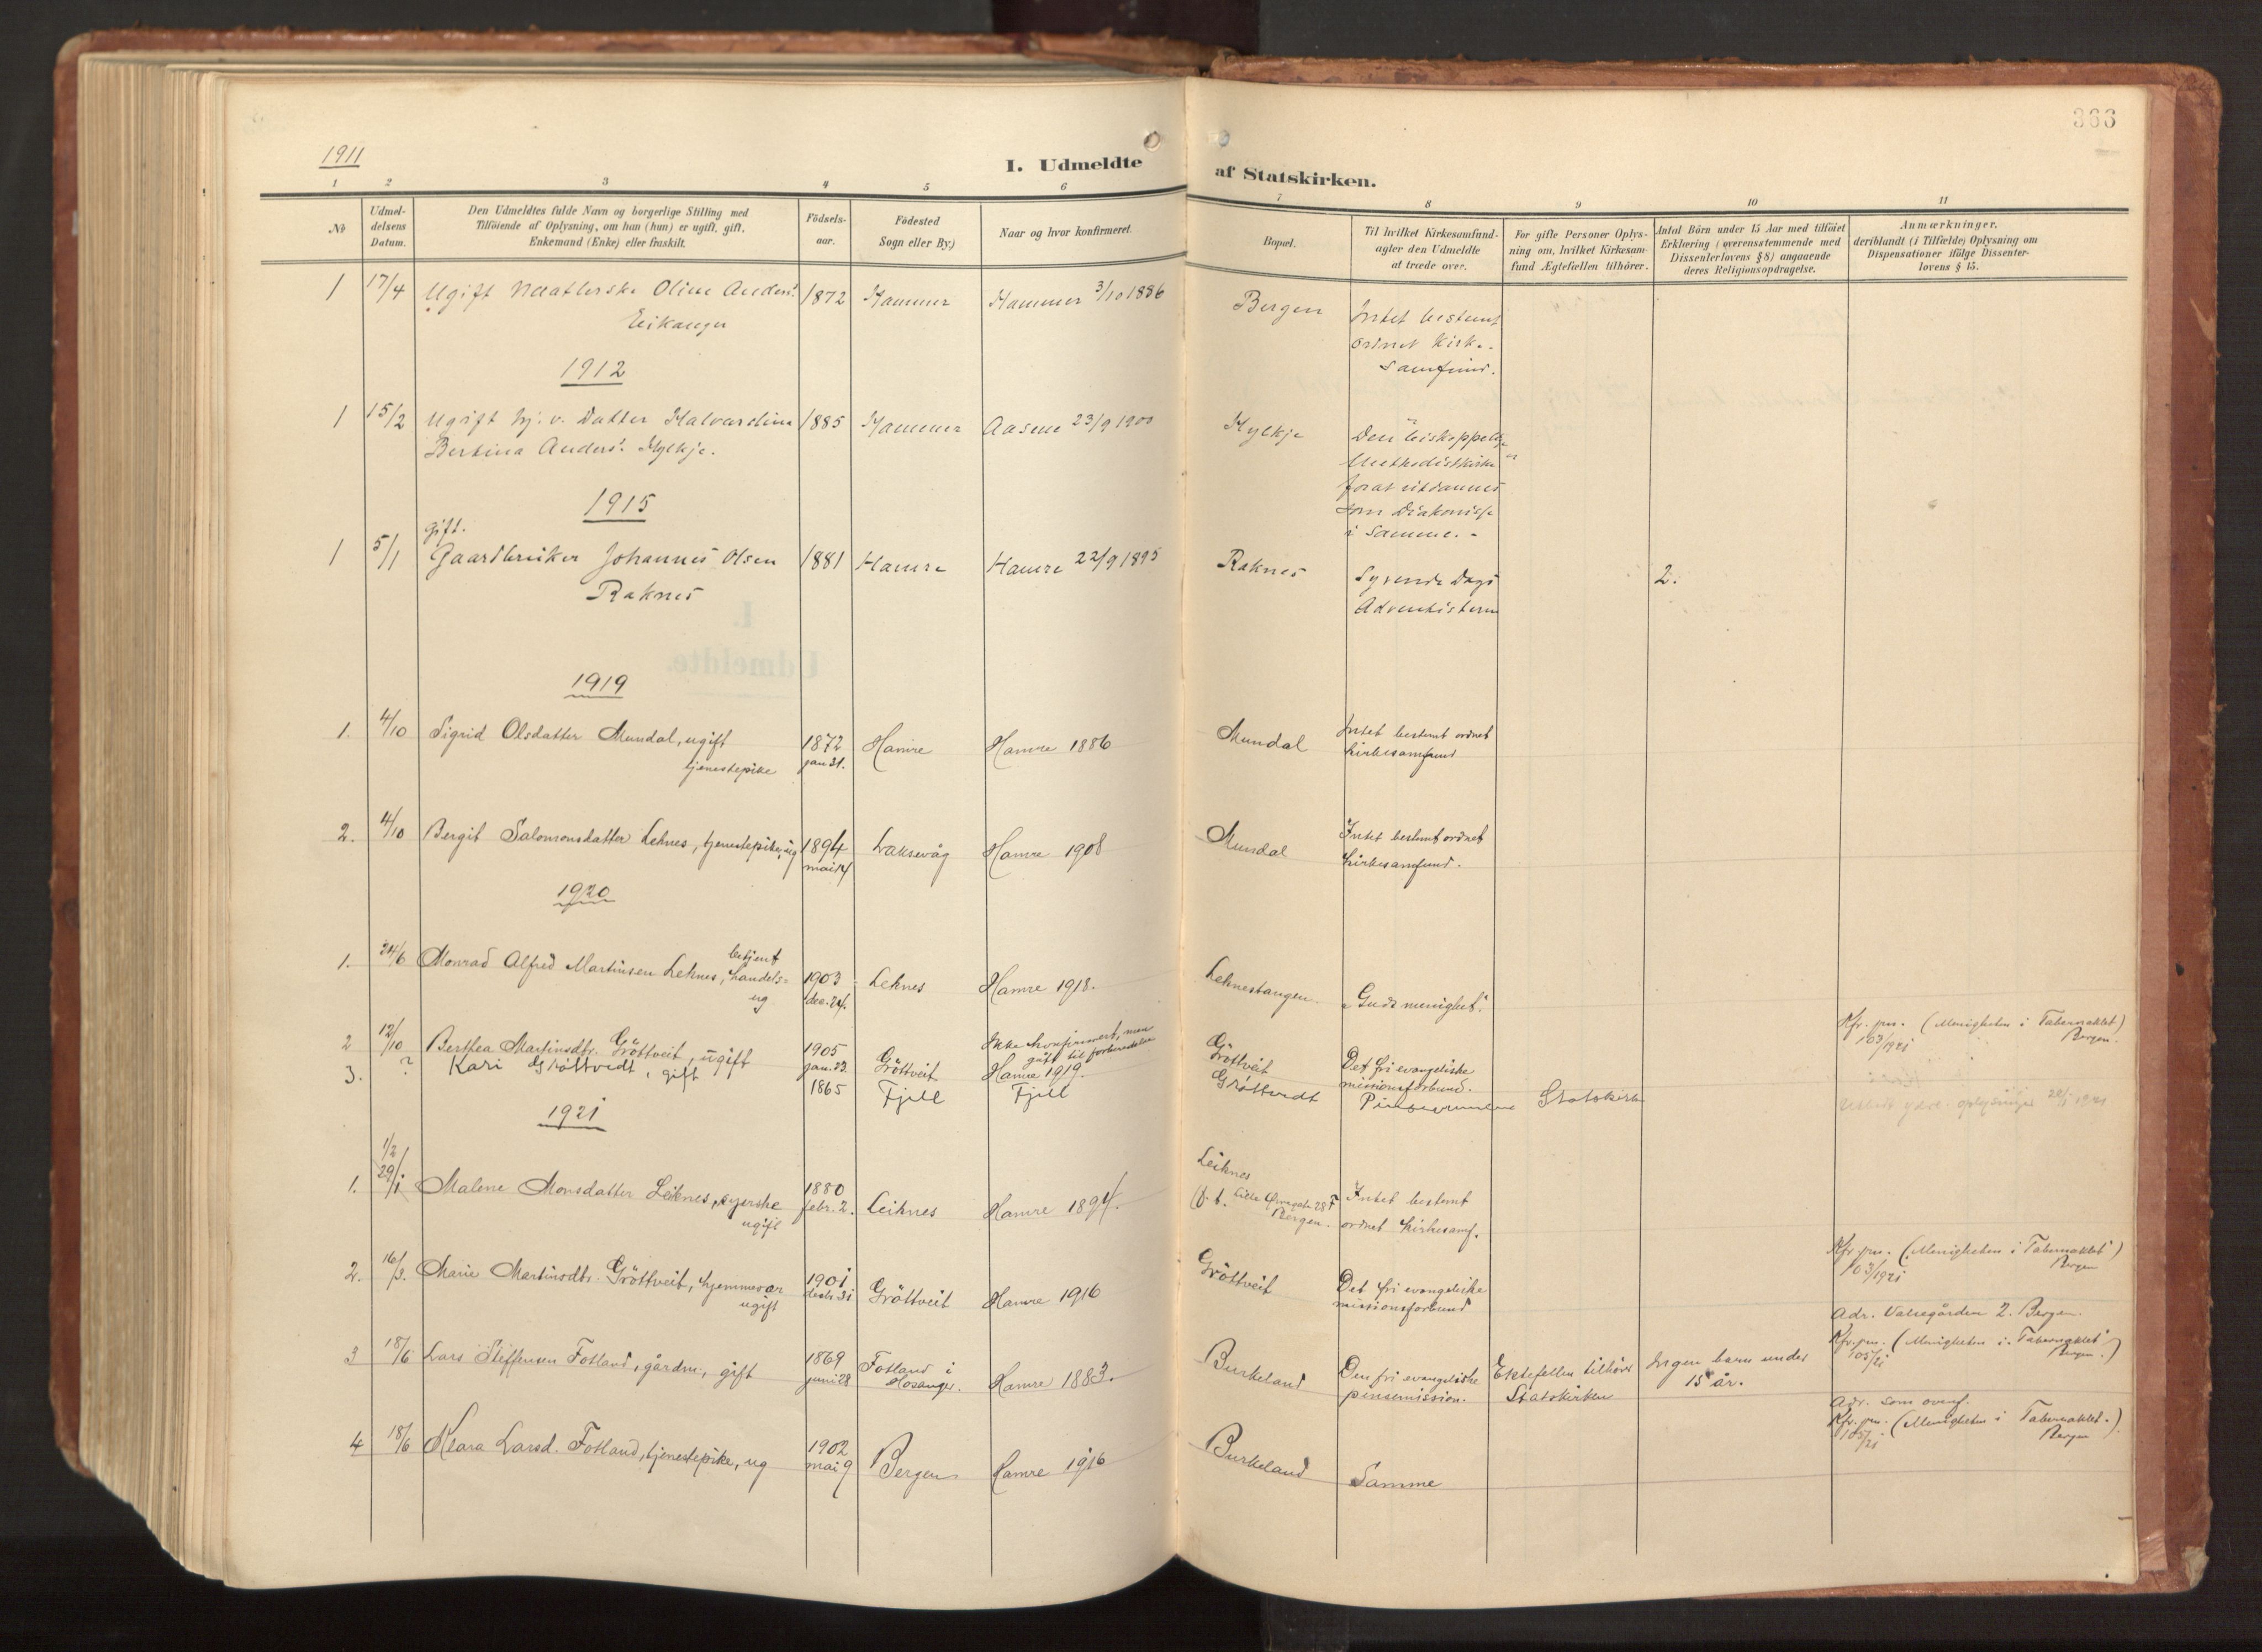 366
1911
I. Udmeldte af Statskirken.
1 2 3 4 5 6 7 8 9 10 11
No
Udmel-
delsens
Datum.
Den Udmeldtes fulde Navn og borgerlige Stilling med
Tilföiende af Oplysning, om han (hun) er ugift, gift,
Enkemand (Enke) eller fraskilt.
Födsels-
aar.
Födested
Sogn eller By.)
Naar og hvor konfirmeret.
Bopæl.
Til hvilket Kirkesamfund
agter den Udmeldte
at træde over.
For gifte Personer Oplys-
ning om, hvilket Kirkesam-
fund Ægtefællen tilhörer.
Antal Börn under 15 Aar med tilföiet
Erklæring (overensstemmende med
Dissenterlovens § 8) angaaende
deres Religionsopdragelse.
Anmærkninger,
deriblandt (i Tilfælde) Oplysning om
Dispensationer ifölge Dissenter-
lovens § 15.
1 17/4 Ugift Oline Anders. 1872 Hammer Hammer 3/10 1886 Bergen Intet bestemt
Eikanger ordnet Kirke-
samfund.
1912
1 15/2 Ugift hj. v. Datter Halvardine 1885 Hammer Aasene 23/9 1900 Hylkje Den biskoppelige
Bertina Anders. Hylkje. Methodistkirke
for at uddannes
som Diakonisse
i samme. -
1915
gift.
1 5/1 Gaardbruker Johannes Olsen 1881 Hamre Hamre 22/9 1895 Raknes Syvende Dags 2.
Raknes Adventisterne
1919
1. 4/10 Sigrid Olsdatter Mundal, ugift 1872 Hamre Hamre 1886 Mundal Intet bestemt ordnet
tjenestepike jan 31. kirkesamfund
2. 4/10 Bergit Salomonsdatter Leknes, tjenestepike, ug 1894 Laksevåg Hamre 1908 Mundal Intet bestemt ordnet
mai 14 kirkesamfund.
1920
betjent
1. 24/6 Monrad Alfred Martinsen Leknes, handels= 1903 Leknes Hamre 1918. Leknestangen. "Guds menighet".
ug dec. 24.
2 12/10 Berthea Martinsdtr. Gröttveit, ugift 1905 jan. 23. Gröttveit Ikke konfirmert, men
gått til forberedelse
Hamre 1919. Gröttveit Det fri evangeliske
missionsforbund. Kfr. pm. (Menigheten i Tabernaklet)
103/1921 Bergen.
3. ? Kari Grøttvedt, gift 1865 Fjell Fjell Grøttvedt Statskirk
oplysninger
1921
1/2
1. 29/1 Malene Monsdatter Leiknes, syerske 1880 Leiknes Hamre 1894. Leiknes Intet bestemt
ugift febr. 2. Bergen. ordnet kirkesamf.
2. 16/3. Marie Martinsdtr. Gröttveit, hjemmevær 1901 Gröttveit Hamre 1916 Gröttveit Det fri evangeliske
ugift missionsforbund Kfr. pm. (Menigheten i Tabernaklet)
103/1921 Bergen
Adr. Valsegården 2. Bergen.
3 18/6 Lars Steffensen Fotland, gårdm., gift 1869 Fotland i Hamre 1883. Burkeland Den fri evangeliske Ektefellen tilhörer Ingen barn under
juni 28 Hosanger. pinsemission. Statskirken 15 år.
Kfr. pm. (Menigheten i Tabernaklet
105/21 Bergen.)
Adr. som ovenf.
4 18/6 Klara Larsd. Fotland, tjenestepike, ug 1902 Bergen Hamre 1916 Burkeland Samme
mai 9 Kfr. pm. (Menigheten i Tabernaklet.)
105/21 Bergen